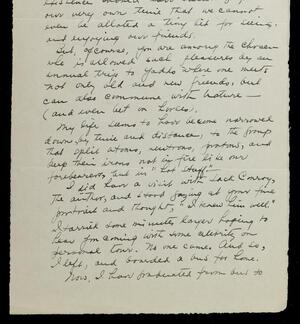 our very own time that we cannot
even be alloted a tiny bit for seeing
and enjoying our friends.
But, of course, you are among the chosen
who is allowed such pleasures as an
annual trip to Yaddo where one meets
not only old and new friends, but
can also commune with Nature —
(and even bet on horses.
My life seems to have become narrowed
down, by time and distance, to the group
that split atoms, neutrons, protons, and
keep their irons not in fire like our
forebearers, but in "hot stuff."
I did have a visit with Jack Conroy,
the author, and stood gazing at your fine
portrait and thought "I knew him well."
I tarried some minutes longer hoping to
hear you coming with some celebrity on
personal tour. No one came. And so,
I left, and boarded a bus for home.
Now, I have from bus to